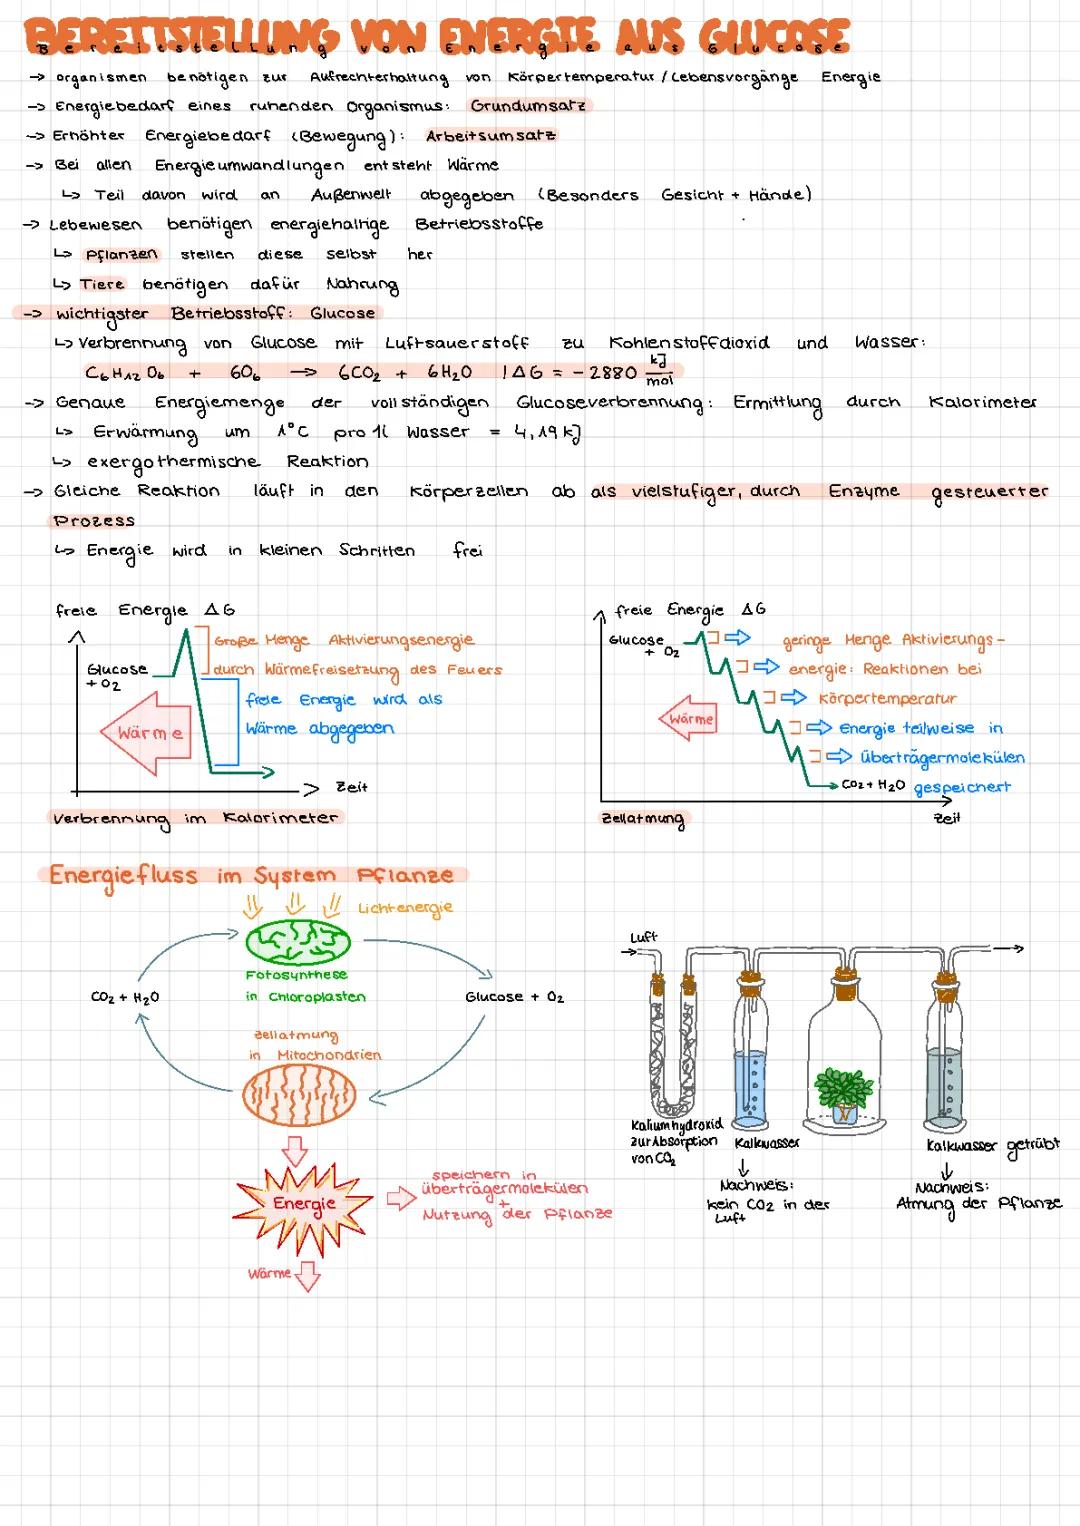 BEREITSTELLUNG VON ENERGIE AUS GLUCOSE
Bereitstellung von Energie aus Glucose
-> organismen benötigen zur Aufrechterhaltung von Körpertemperatur / Lebensvorgänge Energie
-> Energiebedarf eines ruhenden Organismus: Grundumsatz
-> Erhöhter Energiebedarf (Bewegung): Arbeitsumsatz
-> Bei allen Energieumwandlungen entsteht Wärme
↳ Teil davon wird an Außenwelt abgegeben (Besonders Gesicht + Hände)
-> Lebewesen benötigen energiehaltige Betriebsstoffe
↳ Pflanzen stellen diese selbst her
↳ Tiere benötigen dafür Nahrung
-> wichtigster Betriebsstoff: Glucose
↳ Verbrennung von Glucose mit Luftsauerstoff zu Kohlenstoffdioxid und Wasser:
C6H12O6 + 6O6 -> 6CO2 + 6H2O | ΔG = - 2880 kJ/mol
-> Genaue Energiemenge der vollständigen Glucoseverbrennung: Ermittlung durch Kalorimeter
↳ Erwärmung um 1°C pro 1l Wasser = 4,19 kJ
↳ exergothermische Reaktion
-> Gleiche Reaktion läuft in den Körperzellen ab als vielstufiger, durch Enzyme gesteuerter
Prozess
↳ Energie wird in kleinen Schritten frei
freie Energie ΔG
Große Menge Aktivierungsenergie
durch Wärmefreisetzung des Feuers
Glucose
+ O2
freie Energie wird als
Wärme abgegeben
Wärme
Zeit
Verbrennung im Kalorimeter
freie Energie ΔG
Glucose
+ O2
geringe Menge Aktivierungs-
energie: Reaktionen bei
Körpertemperatur
Wärme
Energie teilweise in
überträgermolekülen
CO2 + H2O
gespeichert
Zeit
Zellatmung
Energiefluss im System Pflanze
Lichtenergie
Fotosynthese
in Chloroplasten
CO2 + H2O
Glucose + O2
Zellatmung
in Mitochondrien
Energie
speichern in
überträgermolekülen
+
Nutzung der Pflanze
Wärme
Luft
Kaliumhydroxid
zur Absorption
von CO2
Kalkwasser
Nachweis:
kein CO2 in der
Luft
Kalkwasser getrübt
Nachweis:
Atmung der Pflanze